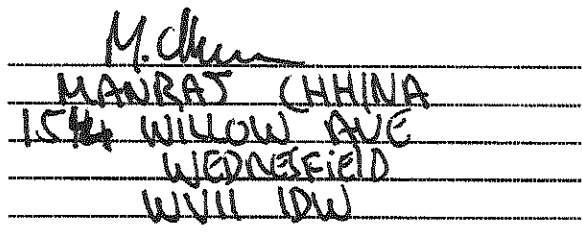 M. Chhina
MANRAJ CHHINA
154 WILLOW AVE
WEDNESFIELD
WV11 1DW